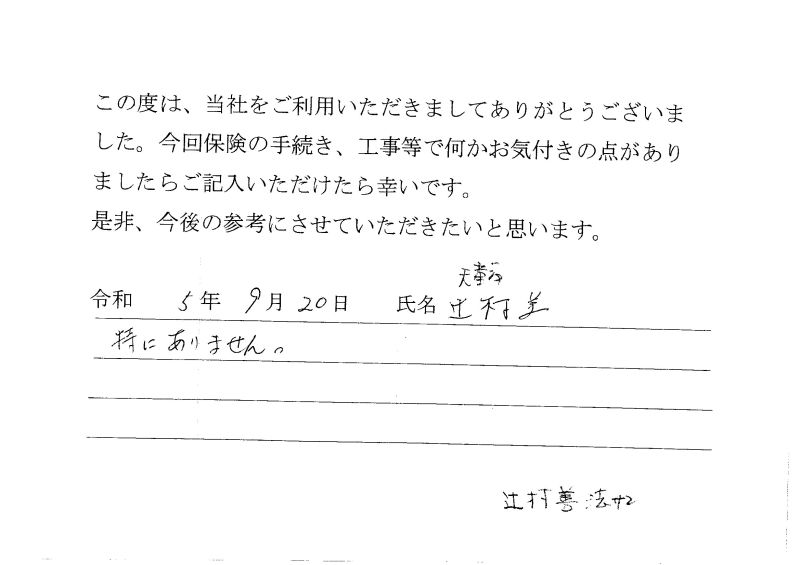 この度は、当社をご利用いただきましてありがとうございま
した。今回保険の手続き、工事等で何かお気付きの点があり
ましたらご記入いただけたら幸いです。
是非、今後の参考にさせていただきたいと思います。
令和 5年 9月20日 氏名 辻村
特にありません。
辻村善法